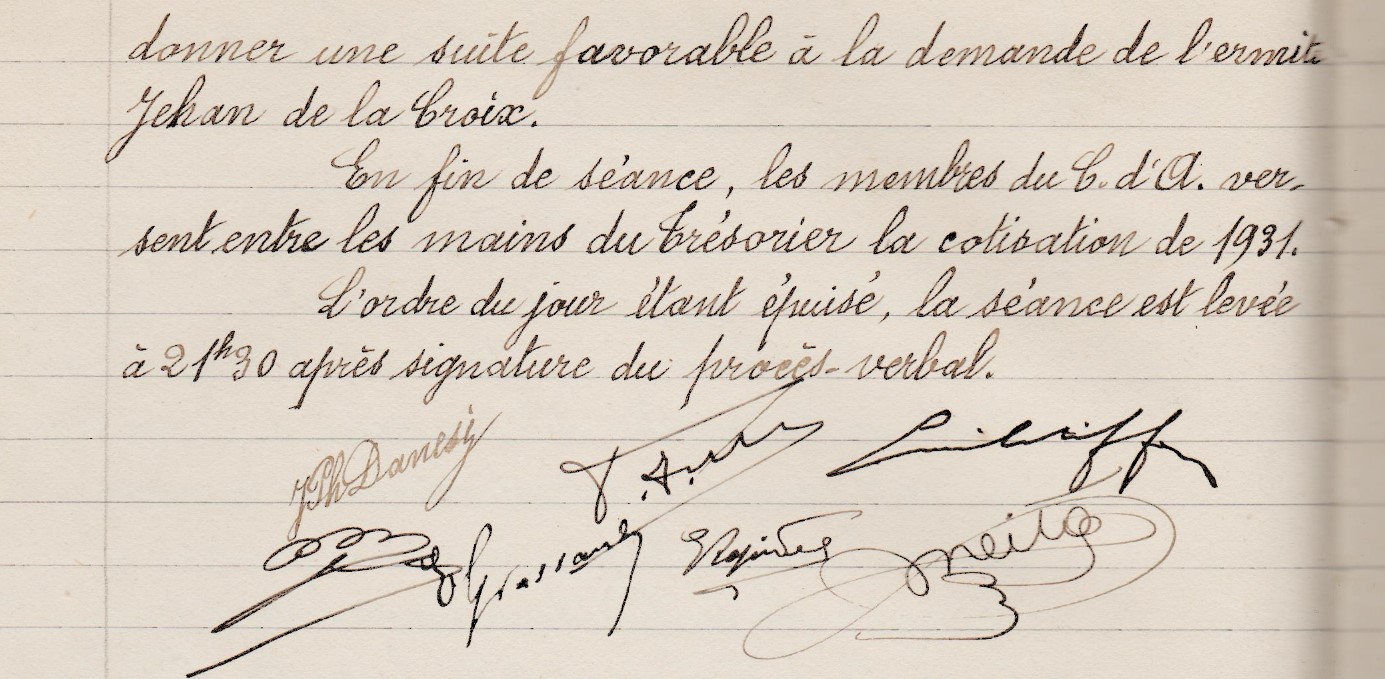 donner une suite favorable à la demande de l'ermite
Jehan de la Croix.
En fin de séance, les membres du C. d'A. ver-
sent entre les mains du Trésorier la cotisation de 1931.
L'ordre du jour étant épuisé, la séance est levée
à 21h30 après signature du procès-verbal.
JPh Danesy